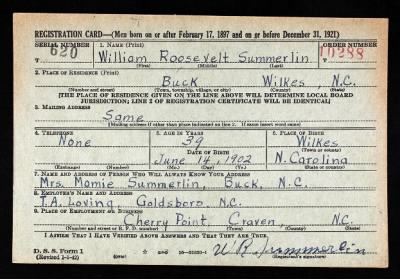 REGISTRATION CARD—(Men born on or after February 17, 1897 and on or before December 31, 1921)
SERIAL NUMBER 1. NAME (Print) ORDER NUMBER
620 William Roosevelt Summerlin 10288
(First) (Middle) (Last)
2. PLACE OF RESIDENCE (Print)
Buck Wilkes N.C.
(Number and street) (Town, township, village, or city) (County) (State)
[THE PLACE OF RESIDENCE GIVEN ON THE LINE ABOVE WILL DETERMINE LOCAL BOARD
JURISDICTION; LINE 2 OF REGISTRATION CERTIFICATE WILL BE IDENTICAL]
3. MAILING ADDRESS
Same
[Mailing address if other than place indicated on line 2. If same insert word same]
4. TELEPHONE 5. AGE IN YEARS 6. PLACE OF BIRTH
None 39 Wilkes
DATE OF BIRTH (Town or county)
June 14, 1902 N. Carolina
(Exchange) (Number) (Mo.) (Day) (Yr.) (State or country)
7. NAME AND ADDRESS OF PERSON WHO WILL ALWAYS KNOW YOUR ADDRESS
Mrs. Momie Summerlin, Buck, N.C.
8. EMPLOYER'S NAME AND ADDRESS
T.A. Loving, Goldsboro, N.C.
9. PLACE OF EMPLOYMENT OR BUSINESS
Cherry Point, Craven, N.C.
(Number and street or R. F. D. number) (Town) (County) (State)
I AFFIRM THAT I HAVE VERIFIED ABOVE ANSWERS AND THAT THEY ARE TRUE.
D. S. S. Form 1
(Revised 1-1-42) (over) W R Summerlin
(Registrant's signature)